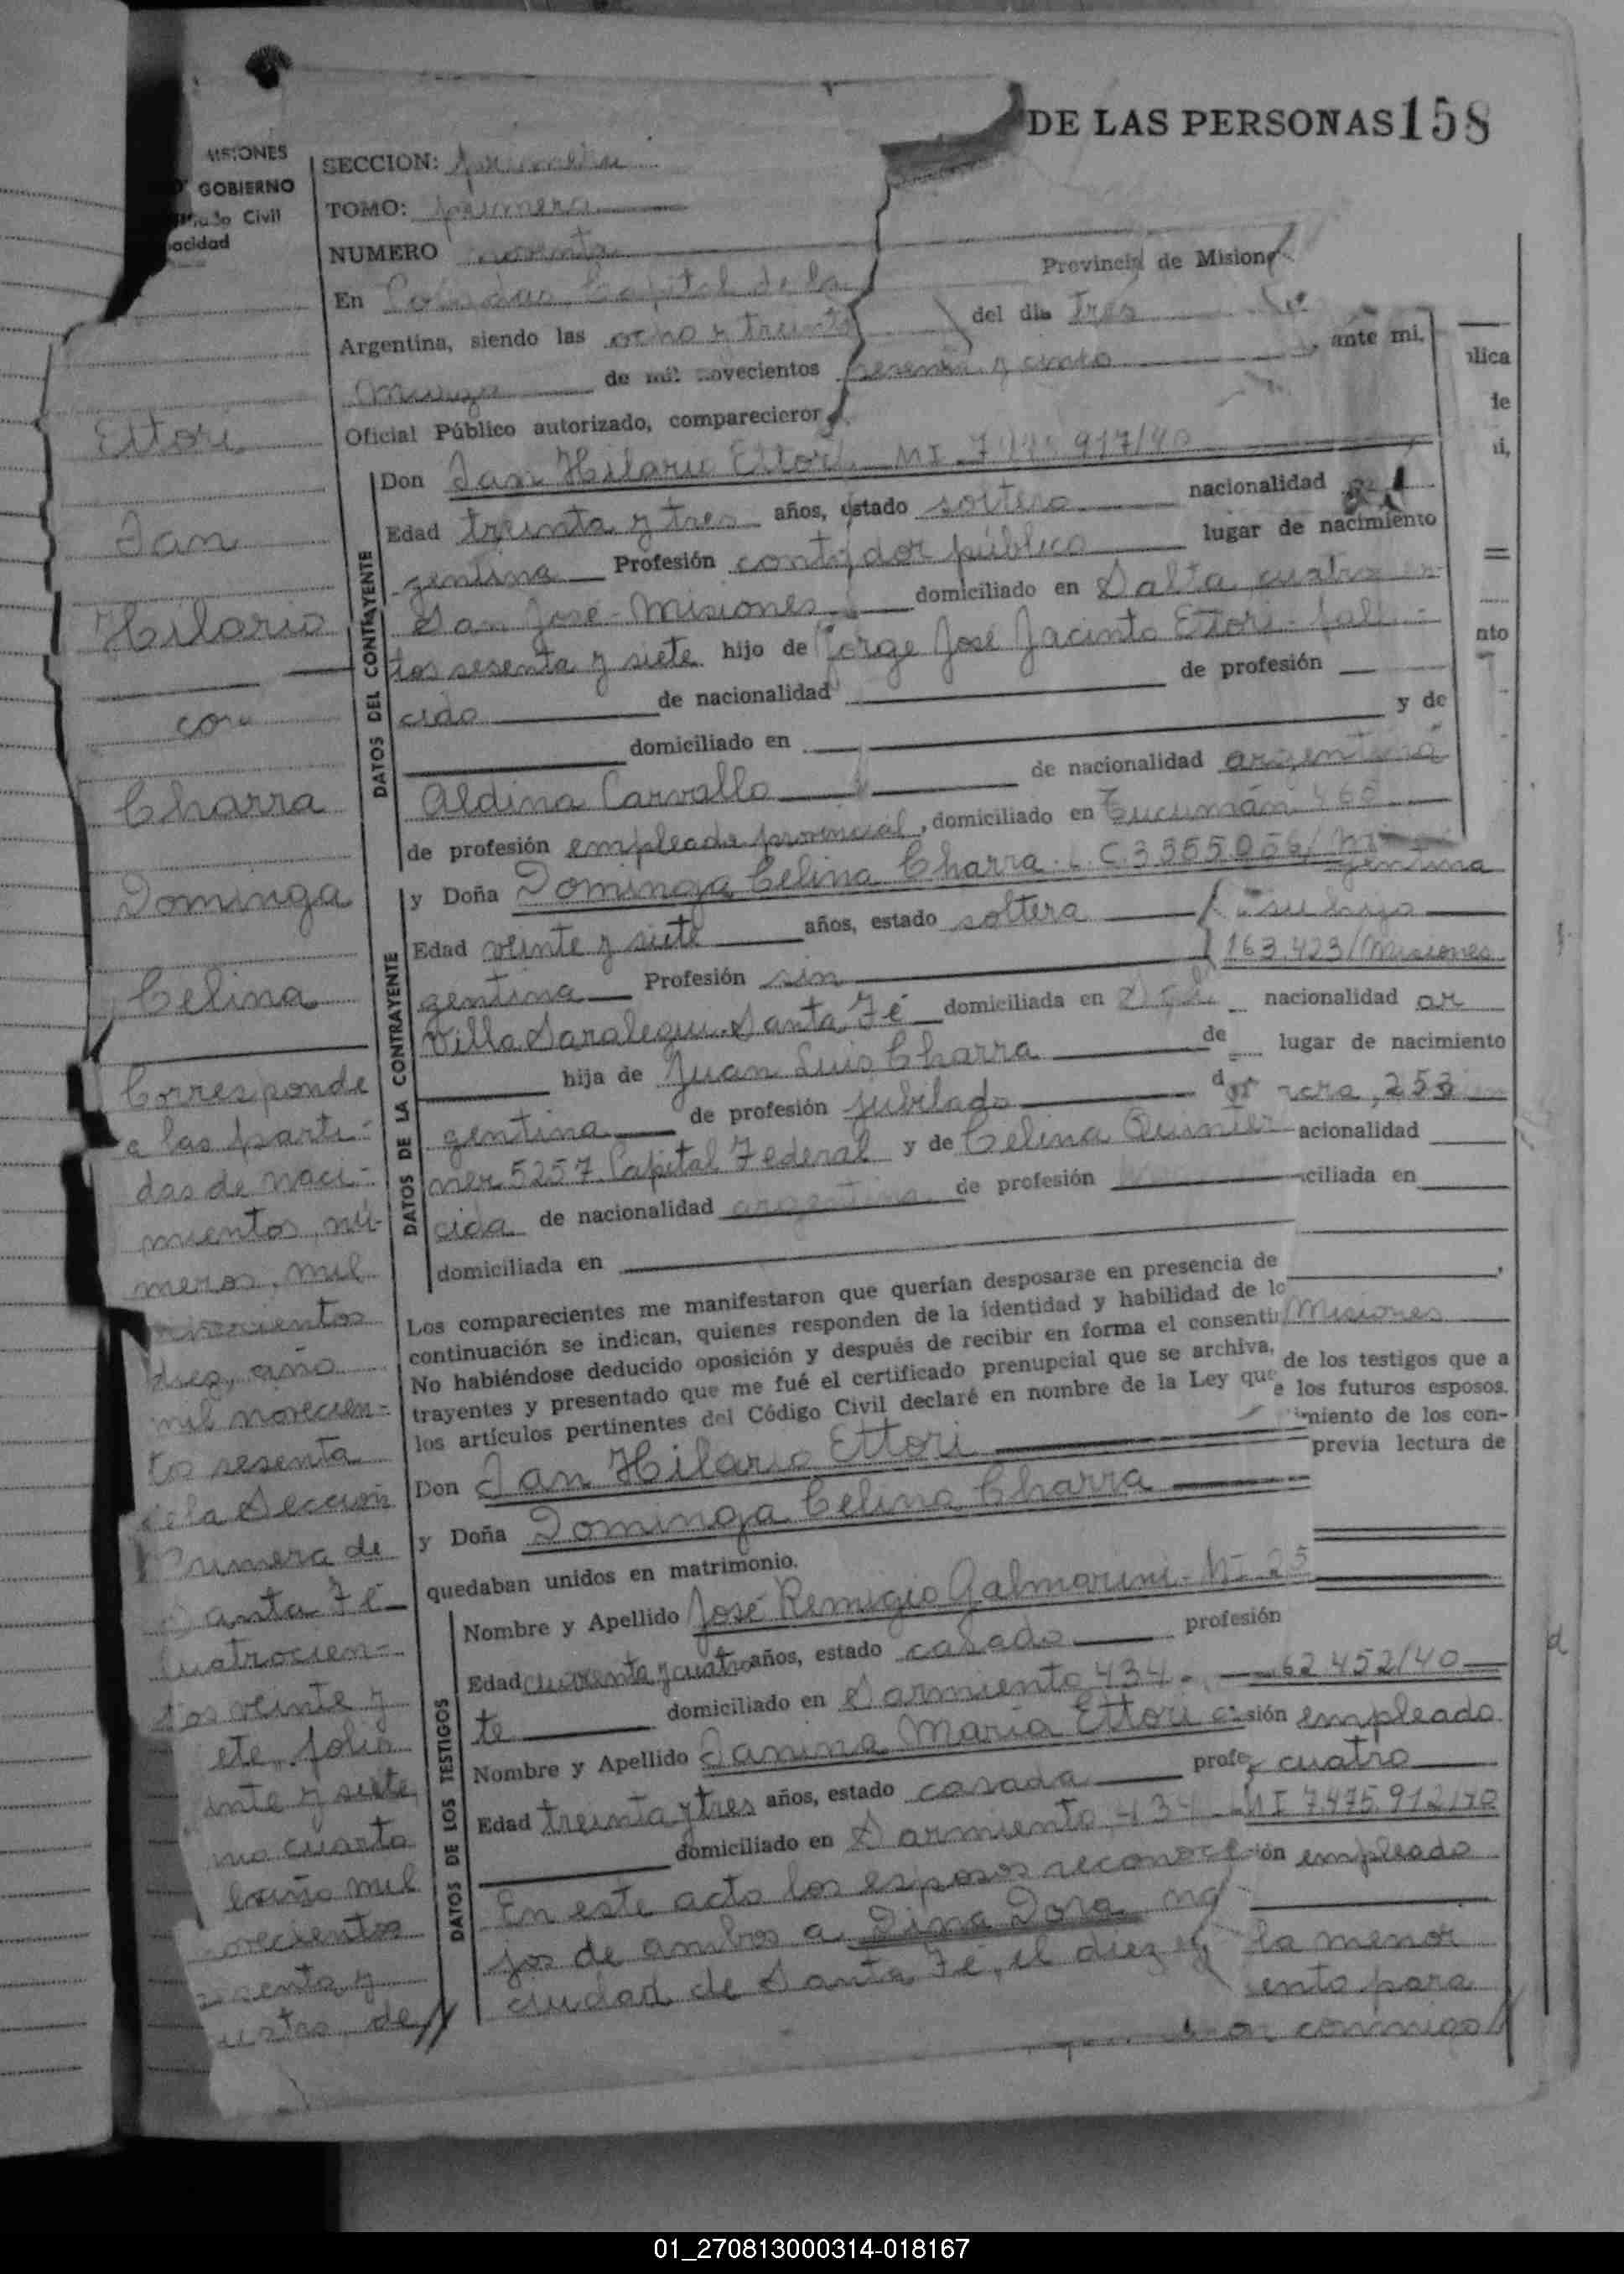 DE LAS PERSONAS 158
MISIONES
GOBIERNO
Civil
acidad
SECCION: primera
TOMO: primera
NUMERO noventa
En Posadas Capital de la
Provincia de Misiones
Argentina, siendo las ocho y treinta
del día tres
de mil novecientos sesenta y cinco , ante mi,
Oficial Público autorizado, comparecieron
Don Jan Hilario Ettori MI 917/40
Edad treinta y tres años, estado soltero nacionalidad
gentina Profesión contador público lugar de nacimiento
San José - Misiones domiciliado en Salta cuatro
tos sesenta y siete hijo de Jorge José Jacinto Ettori - falle
cido de nacionalidad de profesión
domiciliado en y de
Aldina Carvallo de nacionalidad argentina
de profesión empleada provincial, domiciliado en Tucumán
y Doña Dominga Celina Charra L.C. 3.555.056
gentina
Edad veinte y siete años, estado soltera su hijo
163.423/Misiones
gentina Profesión sin
Villa Saralegui - Santa Fé domiciliada en nacionalidad ar
hija de Juan Luis Charra de lugar de nacimiento
gentina de profesión jubilado 253
ner 5257 Capital Federal y de Celina acionalidad
cida de nacionalidad argentina de profesión ciliada en
domiciliada en
Los comparecientes me manifestaron que querían desposarse en presencia de
continuación se indican, quienes responden de la identidad y habilidad de lo
Misiones
No habiéndose deducido oposición y después de recibir en forma el consenti
trayentes y presentado que me fué el certificado prenupcial que se archiva, de los testigos que a
los artículos pertinentes del Código Civil declaré en nombre de la Ley que e los futuros esposos.
imiento de los con-
Don Jan Hilario Ettori previa lectura de
y Doña Dominga Celina Charra
quedaban unidos en matrimonio.
Nombre y Apellido José Remigio Galmarini - MI 25
Edad cuarenta y cuatro años, estado casado profesión
te domiciliado en Sarmiento 434 - 62.452/40
Nombre y Apellido Janina María Ettori sión empleado
Edad treinta y tres años, estado casada profe y cuatro
domiciliado en Sarmiento 434 MI 7.475.912/40
En este acto los esposos reconoce ión empleado
jos de ambos a Dina Dora
ciudad de Santa Fé, el diez la menor
ento para
conmigo//
Ettori
Jan
Hilario
con
Charra
Dominga
Celina
Corresponde
a las parti-
das de naci-
mientos nú-
meros mil
diez, año
mil novecien-
tos sesenta
de la Sección
Primera de
Santa Fé
cuatrocien-
tos veinte y
ete, folio
inte y siete
mo cuarto
año mil
novecientos
senta y
uatro, de//
lica
de
ni,
nto
DATOS DEL CONTRAYENTE
DATOS DE LA CONTRAYENTE
DATOS DE LOS TESTIGOS
01_270813000314-018167